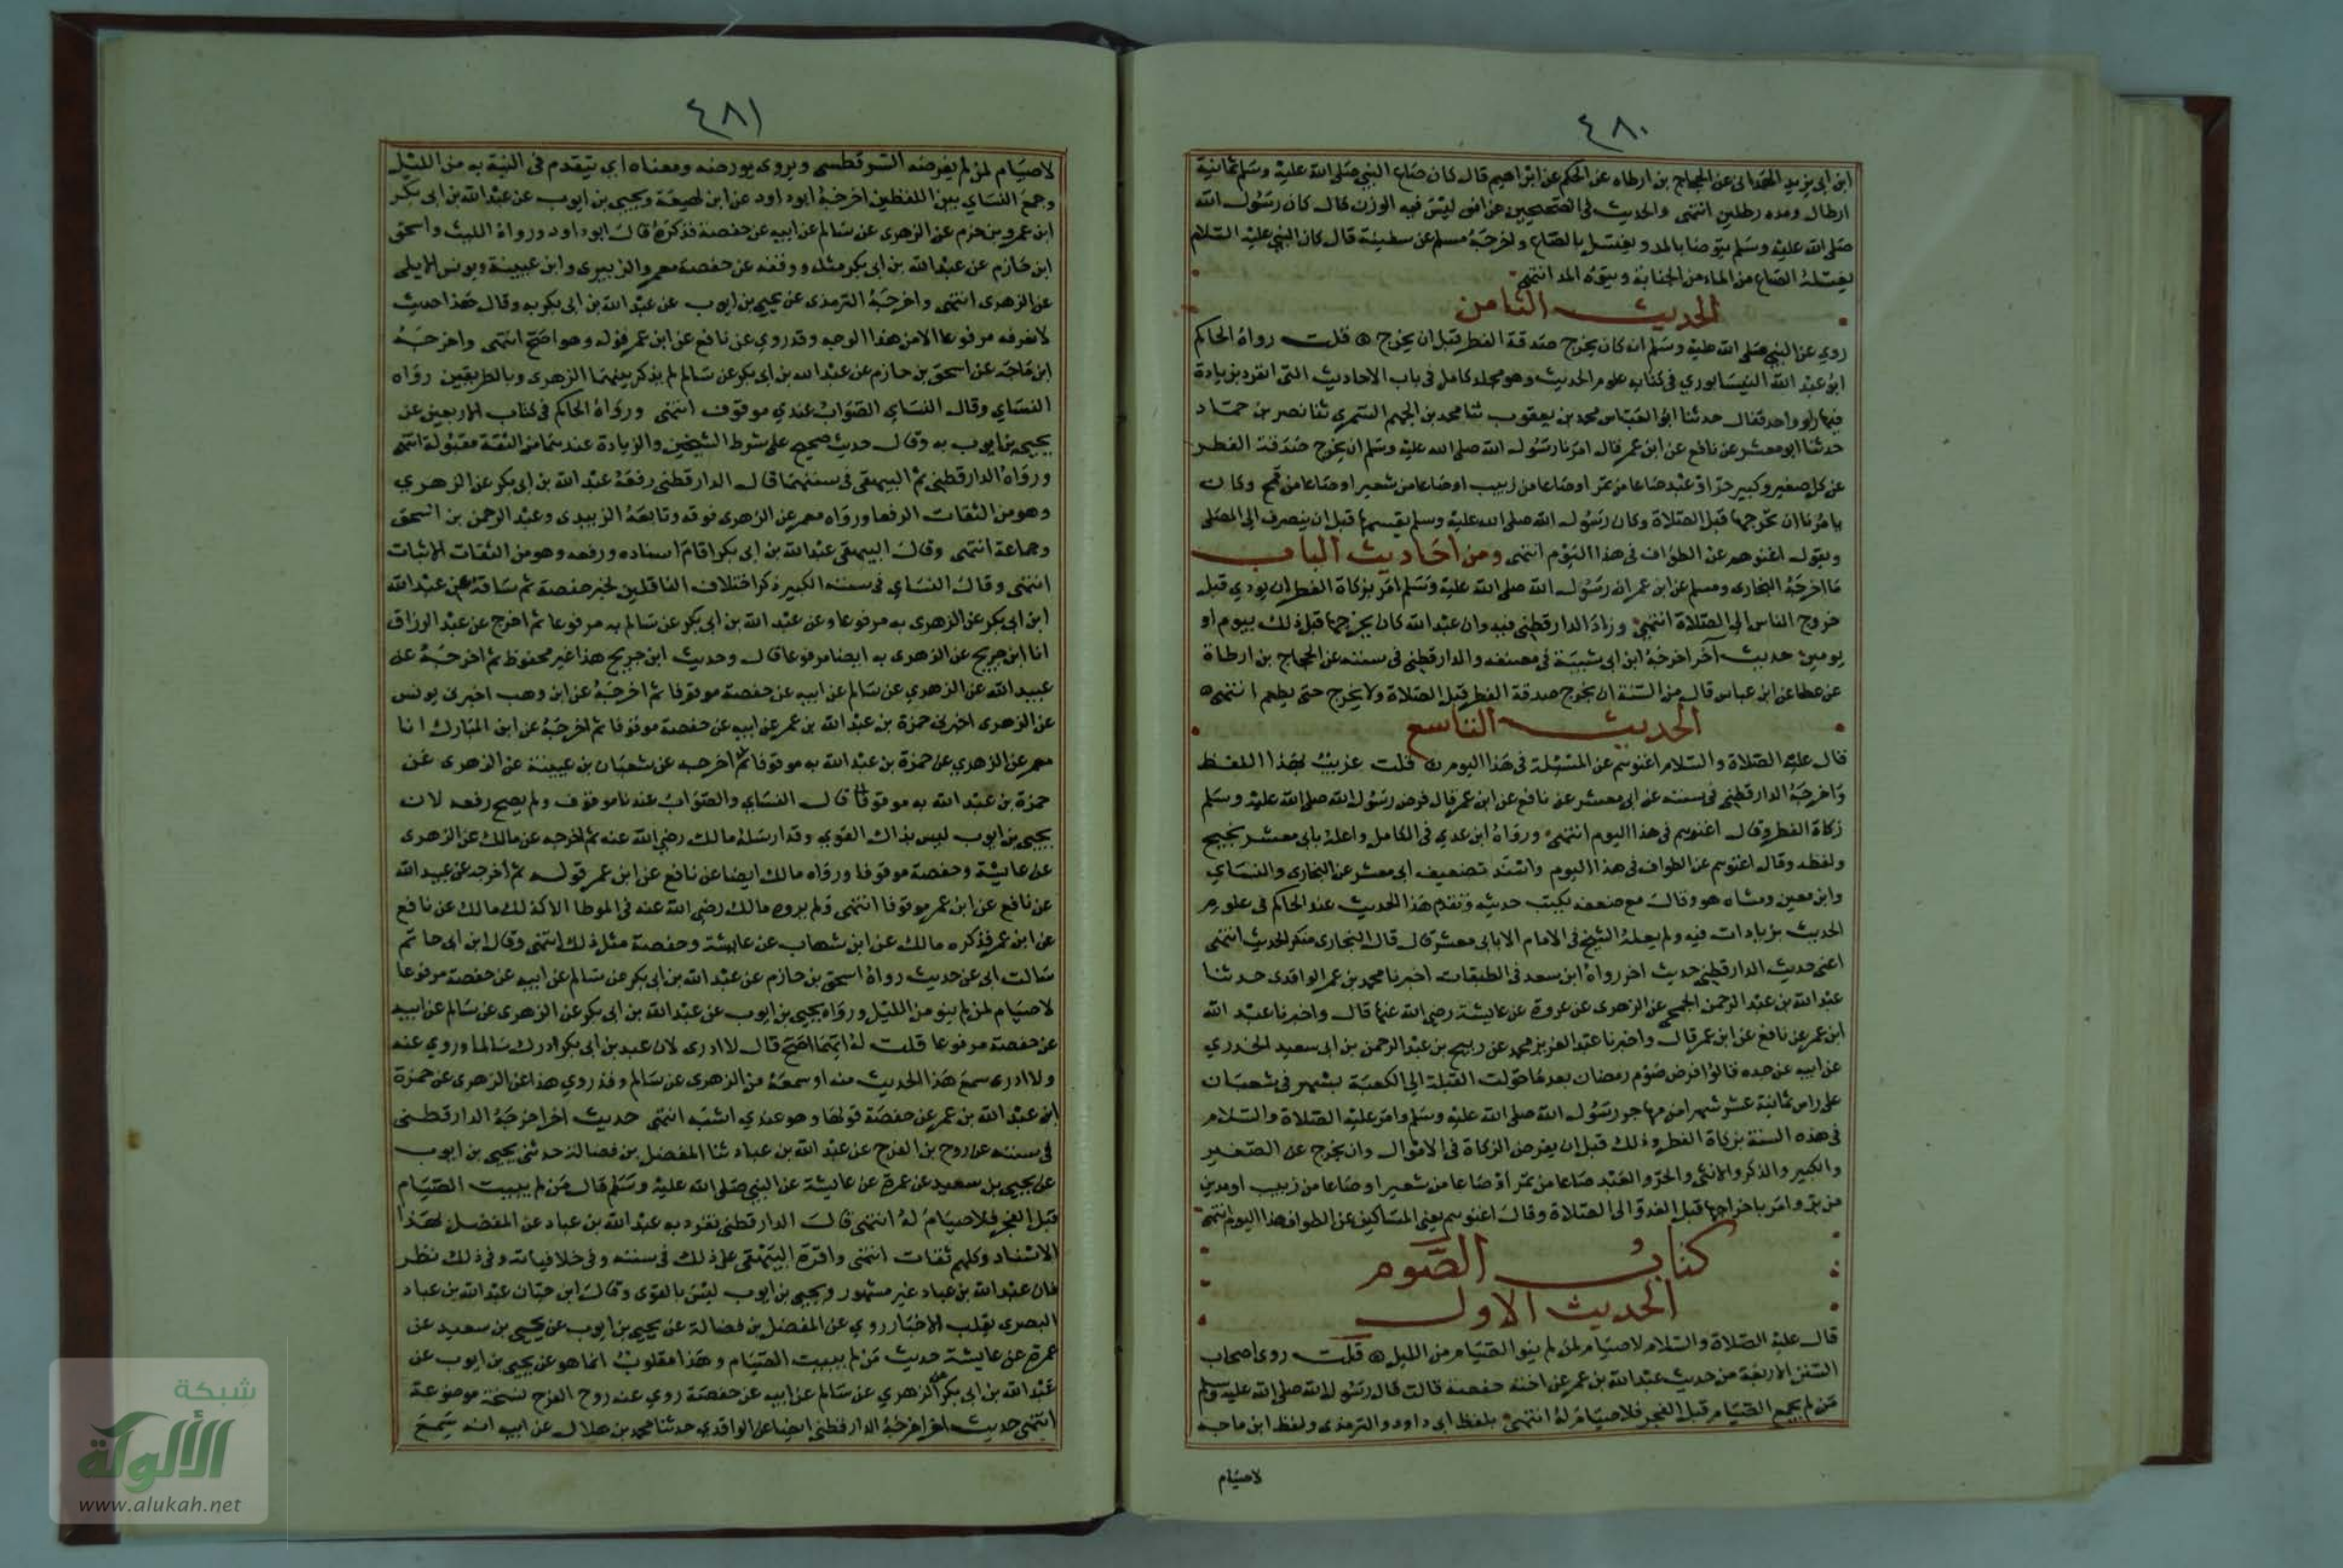 ٤٨٠
ابن ابي يزيد الهمداني عن الحجاج بن ارطاه عن الحكم عن ابراهيم قال كان صاع النبي صلى الله عليه وسلم ثمانية
ارطال ومده رطلين انتهى والحديث في الصحيحين عن انس ليس فيه الوزن قال كان رسول الله
صلى الله عليه وسلم يتوضا بالمد ويغتسل بالصاع واخرجه مسلم عن سفينة قال كان النبي عليه السلام
يغسله الصاع من الماء من الجنابة ويتوه المد انتهى
الحديث الثامن
روي عن النبي صلى الله عليه وسلم انه كان يخرج صدقة الفطر قبل ان يخرج قلت رواه الحاكم
ابو عبد الله النيسابوري في كتابه علوم الحديث وهو مجلد كامل في باب الاحاديث التي انفرد بزيادة
فيها راو واحد فقال حدثنا ابو العباس محمد بن يعقوب ثنا محمد بن الجهم السمري ثنا نصر بن حماد
حدثنا ابو معشر عن نافع عن ابن عمر قال امرنا رسول الله صلى الله عليه وسلم ان يخرج صدقة الفطر
عن كل صغير وكبير حر او عبد صاعا من تمر اوصاعا من زبيب اوصاعا من شعير اوصاعا من قمح وكان
يامرنا ان نخرجها قبل الصلاة وكان رسول الله صلى الله عليه وسلم يقسمها قبل ان ينصرف الى المصلى
ويقول اغنوهم عن الطواف في هذا اليوم انتهى ومن احاديث الباب
ما اخرجه البخاري ومسلم عن ابن عمر ان رسول الله صلى الله عليه وسلم امر بزكاة الفطر ان يودي قبل
خروج الناس الى الصلاة انتهى وزاد الدارقطني فيه وان عبد الله كان يخرجها قبل ذلك بيوم او
يومين حديث آخر اخرجه ابن ابي شيبة في مصنفه والدارقطني في سننه عن الحجاج بن ارطاة
عن عطا عن ابن عباس قال من السنة ان يخرج صدقة الفطر قبل الصلاة ولا يخرج حتى يطعم انتهى
الحديث التاسع
قال عليه الصلاة والسلام اغنوهم عن المسئلة في هذا اليوم قلت غريب بهذا اللفظ
واخرجه الدارقطني في سننه عن ابي معشر عن نافع عن ابن عمر قال فرض رسول الله صلى الله عليه وسلم
زكاة الفطر وقال اغنوهم في هذا اليوم انتهى ورواه ابن عدي في الكامل واعله بابي معشر نجيح
ولفظه وقال اغنوهم عن الطواف في هذا اليوم واسند تضعيف ابي معشر عن البخاري والنساي
وابن معين ومشاه هو وقال مع ضعفه يكتب حديثه وتقدم هذا الحديث عند الحاكم في علوم
الحديث بزيادات فيه ولم يعله الشيخ في الامام الا بابي معشر قال قال البخاري منكر الحديث انتهى
اعني حديث الدارقطني حديث اخر رواه ابن سعد في الطبقات اخبرنا محمد بن عمر الواقدي حدثنا
عبد الله بن عبد الرحمن الجمحي عن الزهري عن عروة عن عايشة رضي الله عنها قال واخبرنا عبد الله
ابن عمر عن نافع عن ابن عمر قال واخبرنا عبد العزيز محمد عن ربيح بن عبد الرحمن بن ابي سعيد الخدري
عن ابيه عن جده قالوا فرض صوم رمضان بعد ما حولت القبلة الي الكعبة بشهر في شعبان
على راس ثمانية عشر شهرا من مهاجر رسول الله صلى الله عليه وسلم وامر عليه الصلاة والسلام
في هذه السنة بزكاة الفطر وذلك قبل ان يفرض الزكاة في الاموال وان يخرج عن الصغير
والكبير والذكر والانثى والحر والعبد صاعا من تمر أو صاعا من شعير او صاعا من زبيب اومدين
من بر وامر باخراجها قبل الغدو الى الصلاة وقال اغنوهم يعني المساكين عن الطواف هذا اليوم انتهى
كتاب الصوم
الحديث الاول
قال عليه الصلاة والسلام لا صيام لمن لم ينو الصيام من الليل قلت روى اصحاب
السنن الاربعة من حديث عبد الله بن عمر عن اخته حفصة قالت قال رسول الله صلى الله عليه وسلم
من لم يجمع الصيام قبل الفجر فلا صيام له انتهى بلفظ ابي داود والترمذي ولفظ ابن ماجه
لا صيام
٤٨١
لا صيام لمن لم يفرضه السرقطسي ويروى يورضه ومعناه اي يتقدم في النية به من الليل
وجمع النساي بين اللفظين اخرجه ابوداود عن ابن لهيعة ويحيى بن ايوب عن عبد الله بن ابي بكر
ابن عمرو بن حزم عن الزهري عن سالم عن ابيه عن حفصة فذكره قال ابو داود ورواه الليث واسحق
ابن حازم عن عبد الله بن ابي بكر مثله ووقفه عن حفصة معمر والزبيري وابن عيينة ويونس الايلي
عن الزهري انتهى واخرجه الترمذي عن يحيى بن ايوب عن عبد الله بن ابي بكر به وقال هذا حديث
لا نعرفه مرفوعا الا من هذا الوجه وقد روي عن نافع عن ابن عمر قوله وهو اصح انتهى واخرجه
ابن ماجه عن اسحق بن حازم عن عبد الله بن ابي بكر عن سالم لم يذكر بينهما الزهري وبالطريقين رواه
النساي وقال النساي الصواب عندي موقوف انتهى ورواه الحاكم في كتاب الاربعين عن
يحيى بن ايوب به وقال حديث صحيح على شرط الشيخين والزيادة عندهما من الثقة مقبولة انتهى
ورواه الدارقطني ثم البيهقي في سننهما قال الدارقطني رفعه عبد الله بن ابي بكر عن الزهري
وهو من الثقات الرفعا ورواه معمر عن الزهري فوقه وتابعه الزبيدي وعبد الرحمن بن اسحق
وجماعة انتهى وقال البيهقي عبد الله بن ابي بكر اقام اسناده ورفعه وهو من الثقات الاثبات
انتهى وقال النساي في سننه الكبير ذكر اختلاف الناقلين لخبر حفصة ثم ساقه عن عبد الله
ابن ابي بكر عن الزهري به مرفوعا وعن عبد الله بن ابي بكر عن سالم به مرفوعا ثم اخرج عن عبد الرزاق
انا ابن جريج عن الزهري به ايضا مرفوعا قال وحديث ابن جريج هذا غير محفوظ ثم اخرجه عن
عبيد الله عن الزهري عن سالم عن ابيه عن حفصة موقوفا ثم اخرجه عن ابن وهب اخبرني يونس
عن الزهري اخبرني حمزة بن عبد الله بن عمر عن ابيه عن حفصة موقوفا ثم اخرجه عن ابن المبارك انا
معمر عن الزهري عن حمزة بن عبد الله به موقوفا ثم اخرجه عن سفيان بن عيينة عن الزهري عن
حمزة بن عبد الله به موقوفا قال النساي والصواب عندنا موقوف ولم يصح رفعه لان
يحيى بن ايوب ليس بذاك القوي وقد ارسله مالك رضي الله عنه ثم اخرجه عن مالك عن الزهري
عن عايشة وحفصة موقوفا ورواه مالك ايضا عن نافع عن ابن عمر قوله ثم اخرجه عن عبيد الله
عن نافع عن ابن عمر موقوفا انتهى ولم يروه مالك رضي الله عنه في الموطا الا كذلك مالك عن نافع
عن ابن عمر فذكره مالك عن ابن شهاب عن عايشة وحفصة مثل ذلك انتهى وقال ابن ابي حاتم
سالت ابي عن حديث رواه اسحق بن حازم عن عبد الله بن ابي بكر عن سالم عن ابيه عن حفصة مرفوعا
لا صيام لمن لم ينو من الليل ورواه يحيى بن ايوب عن عبد الله بن ابي بكر عن الزهري عن سالم عن ابيه
عن حفصة مرفوعا قلت له ايهما اصح قال لا ادرى لان عبد بن ابي بكر ادرك سالما وروي عنه
ولا ادرى سمع هذا الحديث منه او سمعه من الزهري عن سالم وقد روي هذا عن الزهري عن حمزة
ابن عبد الله بن عمر عن حفصة قولها وهو عندي اشبه انتهى حديث اخر اخرجه الدارقطني
في سننه عن روح بن الفرج عن عبد الله بن عباد ثنا المفضل بن فضالة حدثني يحيى بن ايوب
عن يحيى بن سعيد عن عمرة عن عايشة عن النبي صلى الله عليه وسلم قال من لم يبيت الصيام
قبل الفجر فلا صيام له انتهى قال الدارقطني تفرد به عبد الله بن عباد عن المفضل بهذا
الاسناد وكلهم ثقات انتهى واقره البيهقي على ذلك في سننه وفي خلافياته وفي ذلك نظر
فان عبد الله بن عباد غير مشهور ويحيى بن ايوب ليس بالقوى وقال ابن حبان عبد الله بن عباد
البصري يقلب الاخبار روي عن المفضل بن فضالة عن يحيى بن ايوب عن يحيى بن سعيد عن
عمرة عن عايشة حديث من لم يبيت الصيام وهذا مقلوب انما هو عن يحيى بن ايوب عن
عبد الله بن ابي بكر عن الزهري عن سالم عن ابيه عن حفصة روي عنه روح الفرج نسخة موضوعة
انتهى حديث اخر اخرجه الدارقطني ايضا عن الواقدي حدثنا محمد بن هلال عن ابيه انه سمع
شبكة
الألوكة
www.alukah.net